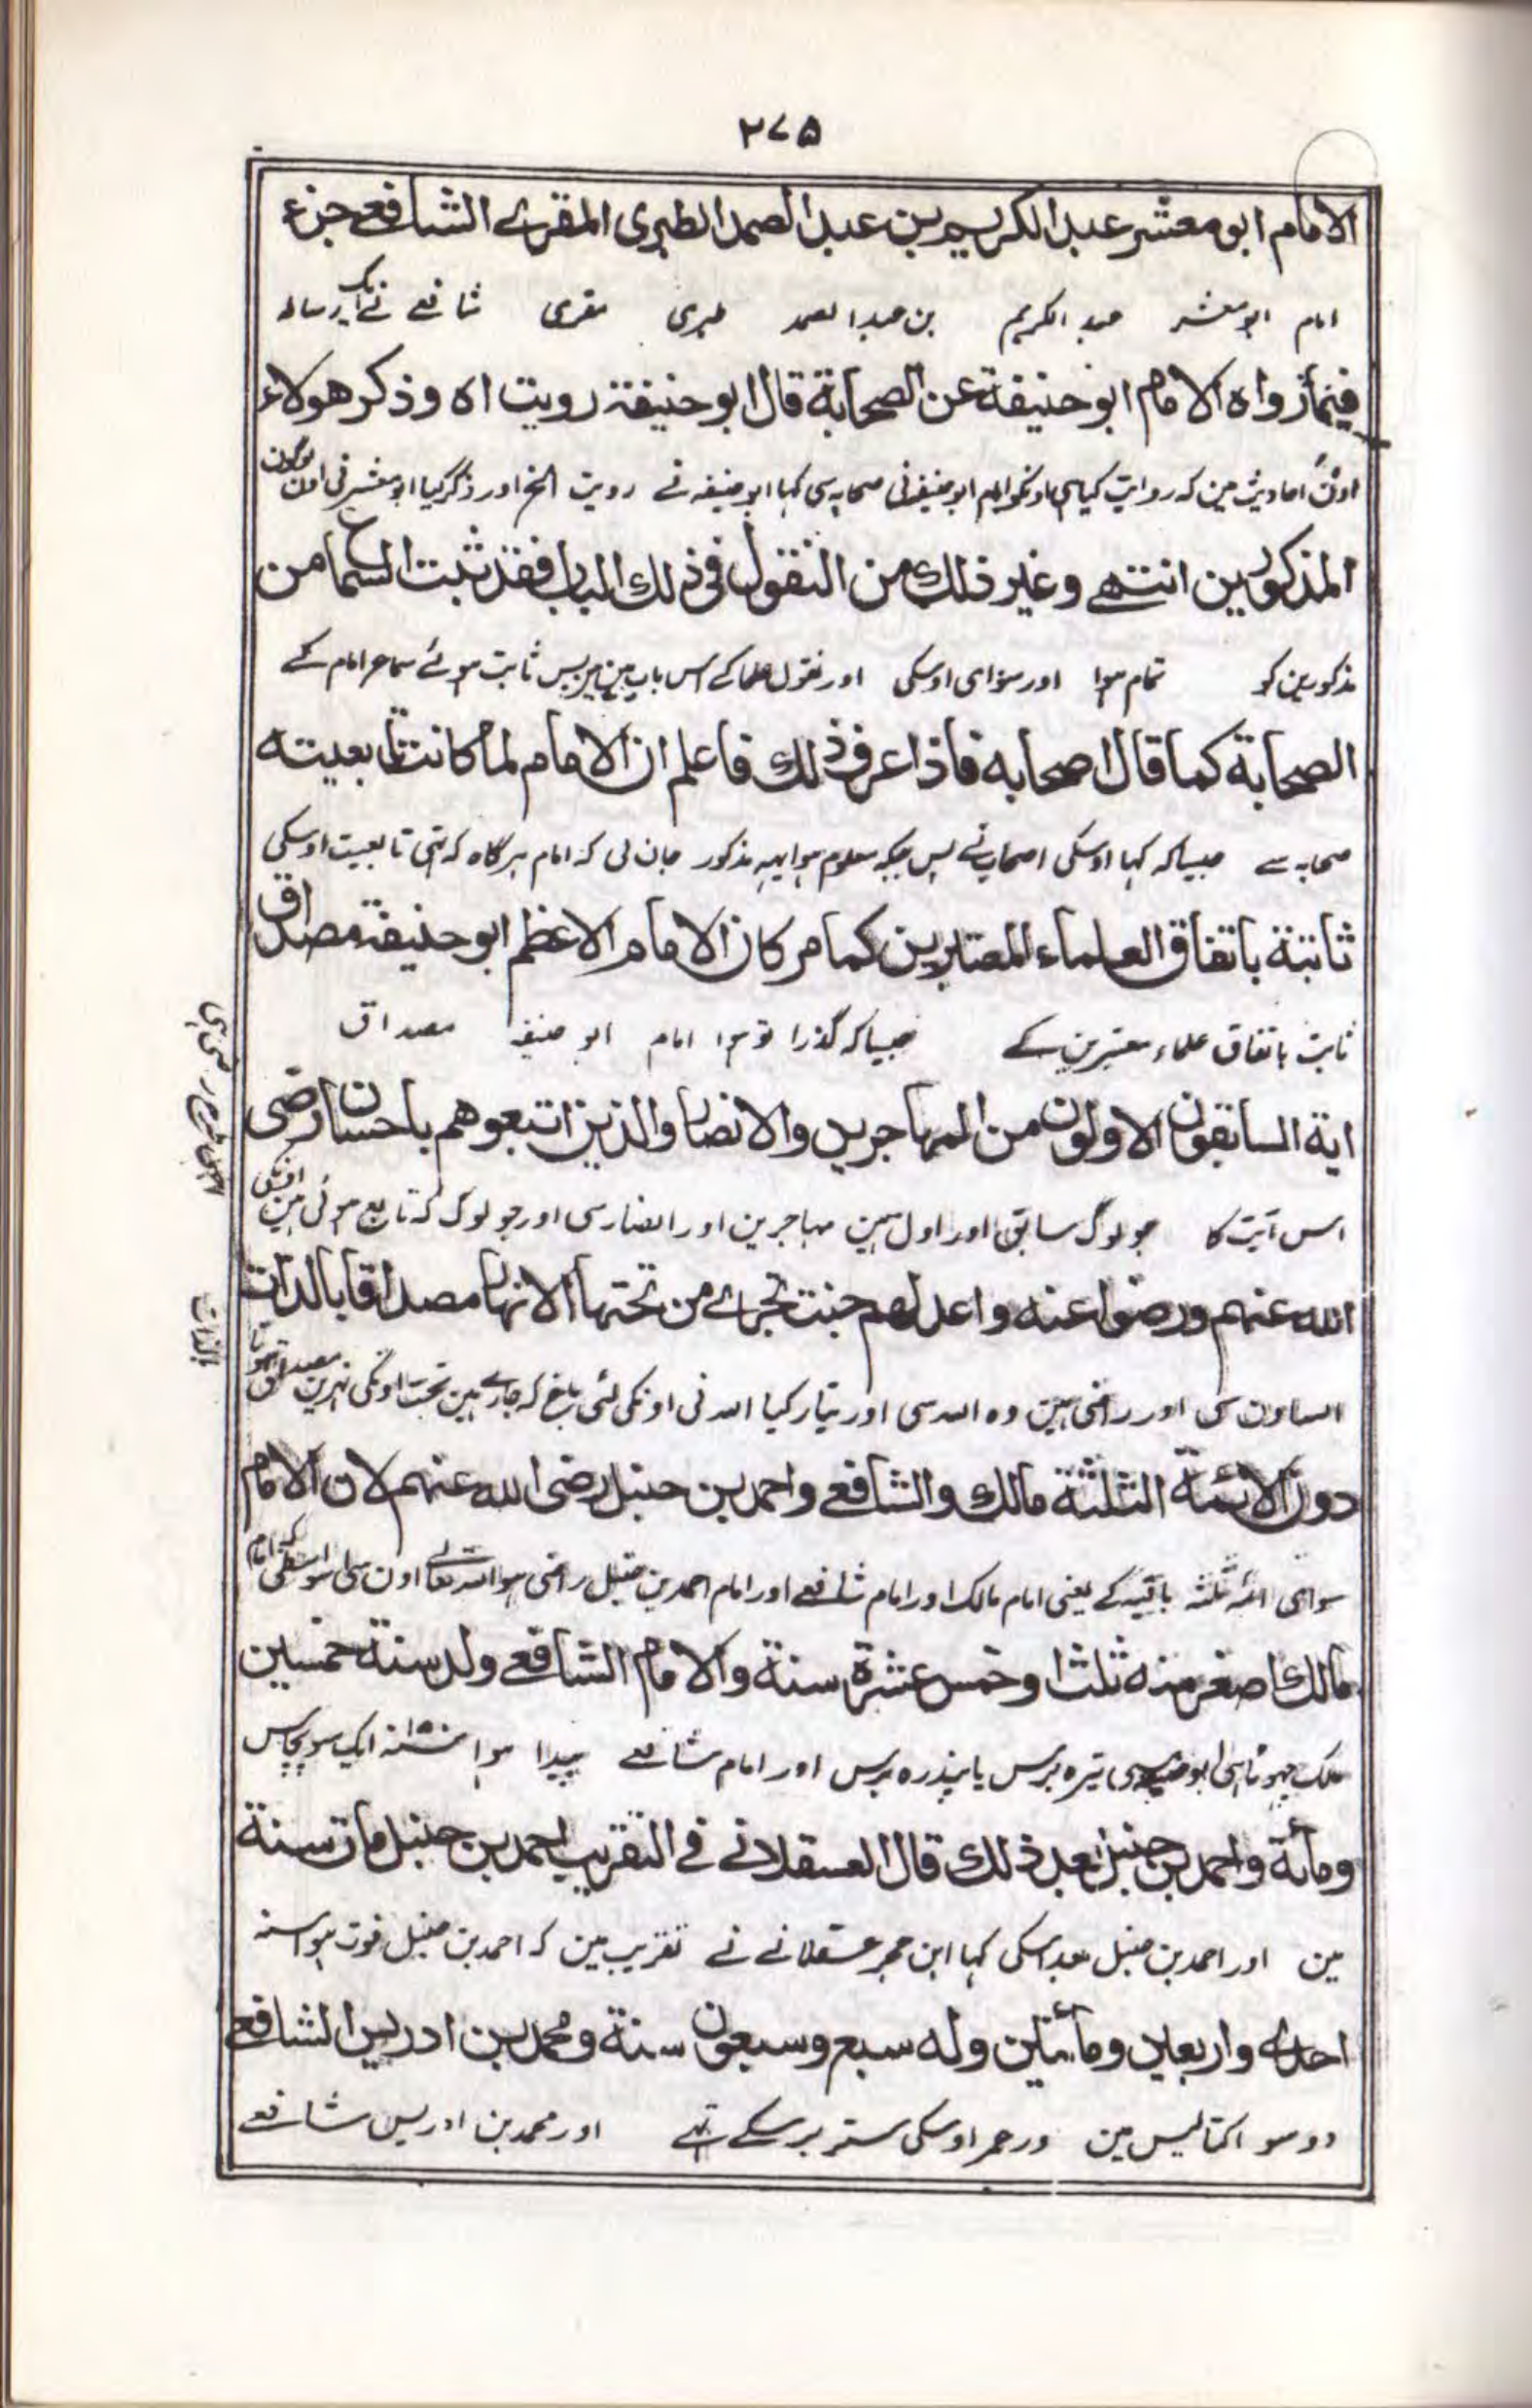 ٢٧٥
الامام ابو معشر عبد الكريم بن عبد الصمد الطبرى المقرے الشافعے جزء
امام ابو معشر عبد الکریم بن عبد الصمد طبری مقری شافعے نے ایک رسالہ
فيما رواه الامام ابو حنيفة عن الصحابة قال ابو حنيفة رويت اه وذكر هولاء
اون احادیث مین کہ روایت کیا ہی اونکو امام ابو حنیفہ نی صحابہ سی کہا ابو حنیفہ نے رویت الخ اور ذکر کیا ابو معشر نی اون لوگون
المذكورين انتهے وغير ذلك من النقول فى ذلك الباب فقد ثبت السماع من
مذکورین کو تمام ہوا اور سوای اوسکی اور نقول علما کے اس باب مین ہیں پس ثابت ہوئے سماع امام کے
الصحابة كما قال اصحابه فاذا عرف ذلك فاعلم ان الامام لما كانت تابعيته
صحابہ سے جیسا کہ کہا اوسکی اصحاب نے پس جبکہ معلوم ہوا یہہ مذکور جان لی کہ امام ہر گاہ کہ تہی تابعیت اوسکی
ثابتة باتفاق العلماء المعتبرين كما مر كان الامام الاعظم ابو حنيفة مصداق
ثابت باتفاق علماء معتبرین کے جیسا کہ گذرا تو ہوا امام ابو حنیفہ مصداق
اية السابقون الاولون من المهاجرين والانصار والذين اتبعوهم باحسان رضى
اس آیت کا جو لوگ سابق اور اول ہین مہاجرین اور انصار سی اور جو لوگ کہ تابع ہوئی ہین اونکی
الله عنهم ورضوا عنه واعد لهم جنت تجرے من تحتها الانهار مصداقا بالذات
اللہ اون سی اور راضی ہین وہ اللہ سی اور تیار کیا اللہ نی اونکی لئی باغ کہ جارے ہین تحت اونکی نہرین مصداق ہونا
بالذات
دون الائمة الثلثة مالك والشافعے واحمد بن حنبل رضى الله عنهم لان الامام
سوای ائمہ ثلثہ باقیہ کے یعنی امام مالک اور امام شافعے اور امام احمد بن حنبل راضی ہو اللہ تعالے اون سی اسواسطی کہ امام
مالك اصغر منه ثلثا وخمس عشرة سنة والامام الشافعے ولد سنة خمسين
مالک چہوٹا ہی ابو حنیفہ سی تیرہ برس یا پندرہ برس اور امام شافعے پیدا ہوا سنہ ۱۵۰ ایک سو پچاس
ومأئة واحمد بن حنبل بعد ذلك قال العسقلانے فے التقريب احمد بن حنبل مات سنة
مین اور احمد بن حنبل بعد اسکی کہا ابن حجر عسقلانے نے تقریب مین کہ احمد بن حنبل فوت ہوا سنہ
احدے واربعين ومأئتين وله سبع وسبعون سنة ومحمد بن ادريس الشافعے
دو سو اکتالیس مین اور عمر اوسکی ستتر برسکے تہے اور محمد بن ادریس شافعے